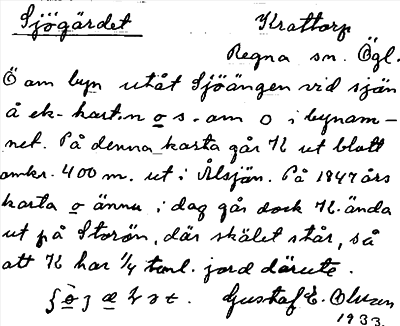 Sjögärdet Krattorp
Regna sn. Ögl.
Ö om byn utåt Sjöängen vid sjön
å ek-kart.n o s. om o i bynam-
net. På denna karta går K ut blott
omkr. 400 m. ut i Ålsjön. På 1847 års
karta o ännu i dag går dock K. ända
ut på Storön, där skälet står, så
att K har 1/4 tunl. jord därute.
Gustaf E. Olsson
1933.